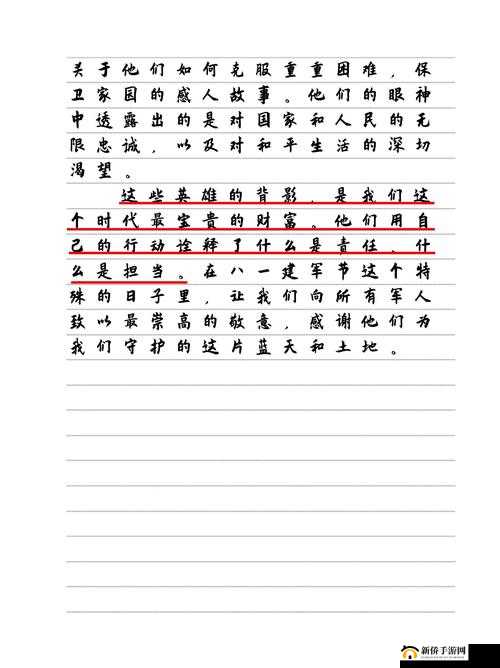 关于他们如何克服重重困难，保
卫家园的感人故事。他们的眼神
中透露出的是对国家和人民的无
限忠诚，以及对和平生活的深切
渴望。
这些英雄的背影，是我们这
个时代最宝贵的财富。他们用自
己的行动诠释了什么是责任、什
么是担当。在八一建军节这个特
殊的日子里，让我们向所有军人
致以最崇高的敬意，感谢他们为
我们守护的这片蓝天和土地。
新侨手游网